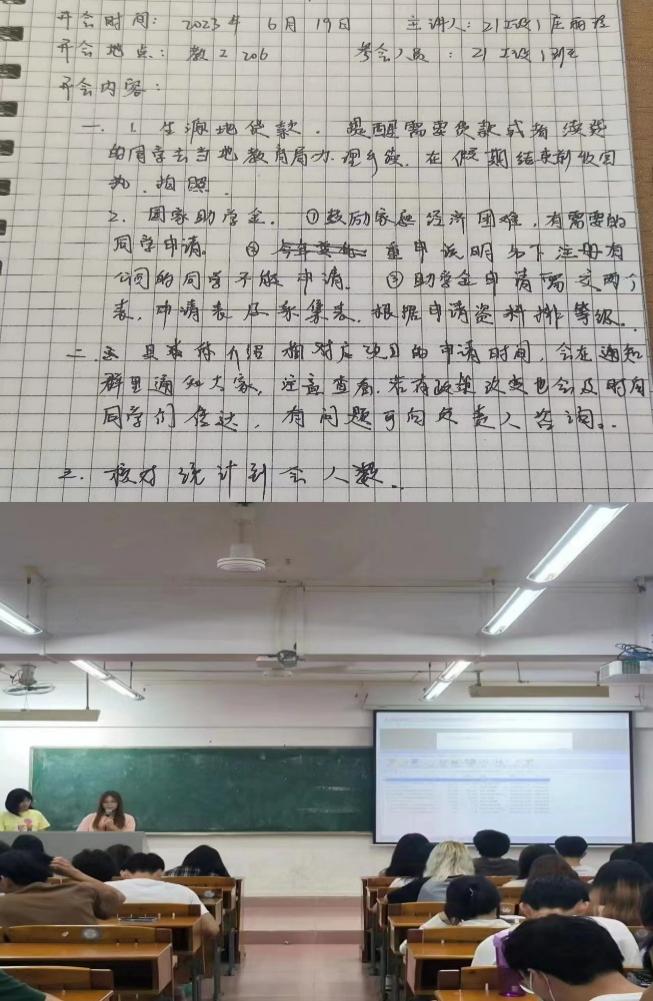 开会时间: 2023年 6月 19日 主讲人: 21工设1
开会地点: 教2 206 参会人员: 21工设1班
开会内容:
一. 1. 生源地贷款. 提醒需要贷款或者续贷
的同学去当地教育局办理手续. 在假期结束前收回
执. 拍照.
2. 国家助学金. ①鼓励家庭经济困难, 有需要的
同学申请. ② 重申说明名下注册有
公司的同学不能申请. ③助学金申请需交两个
表, 申请表及采集表. 根据申请资料排等级.
二. 介绍相对应项目的申请时间, 会在通知
群里通知大家, 注意查看. 若有政策改变也会及时向
同学们传达, 有问题可向负责人咨询.
三. 核对统计到会人数.